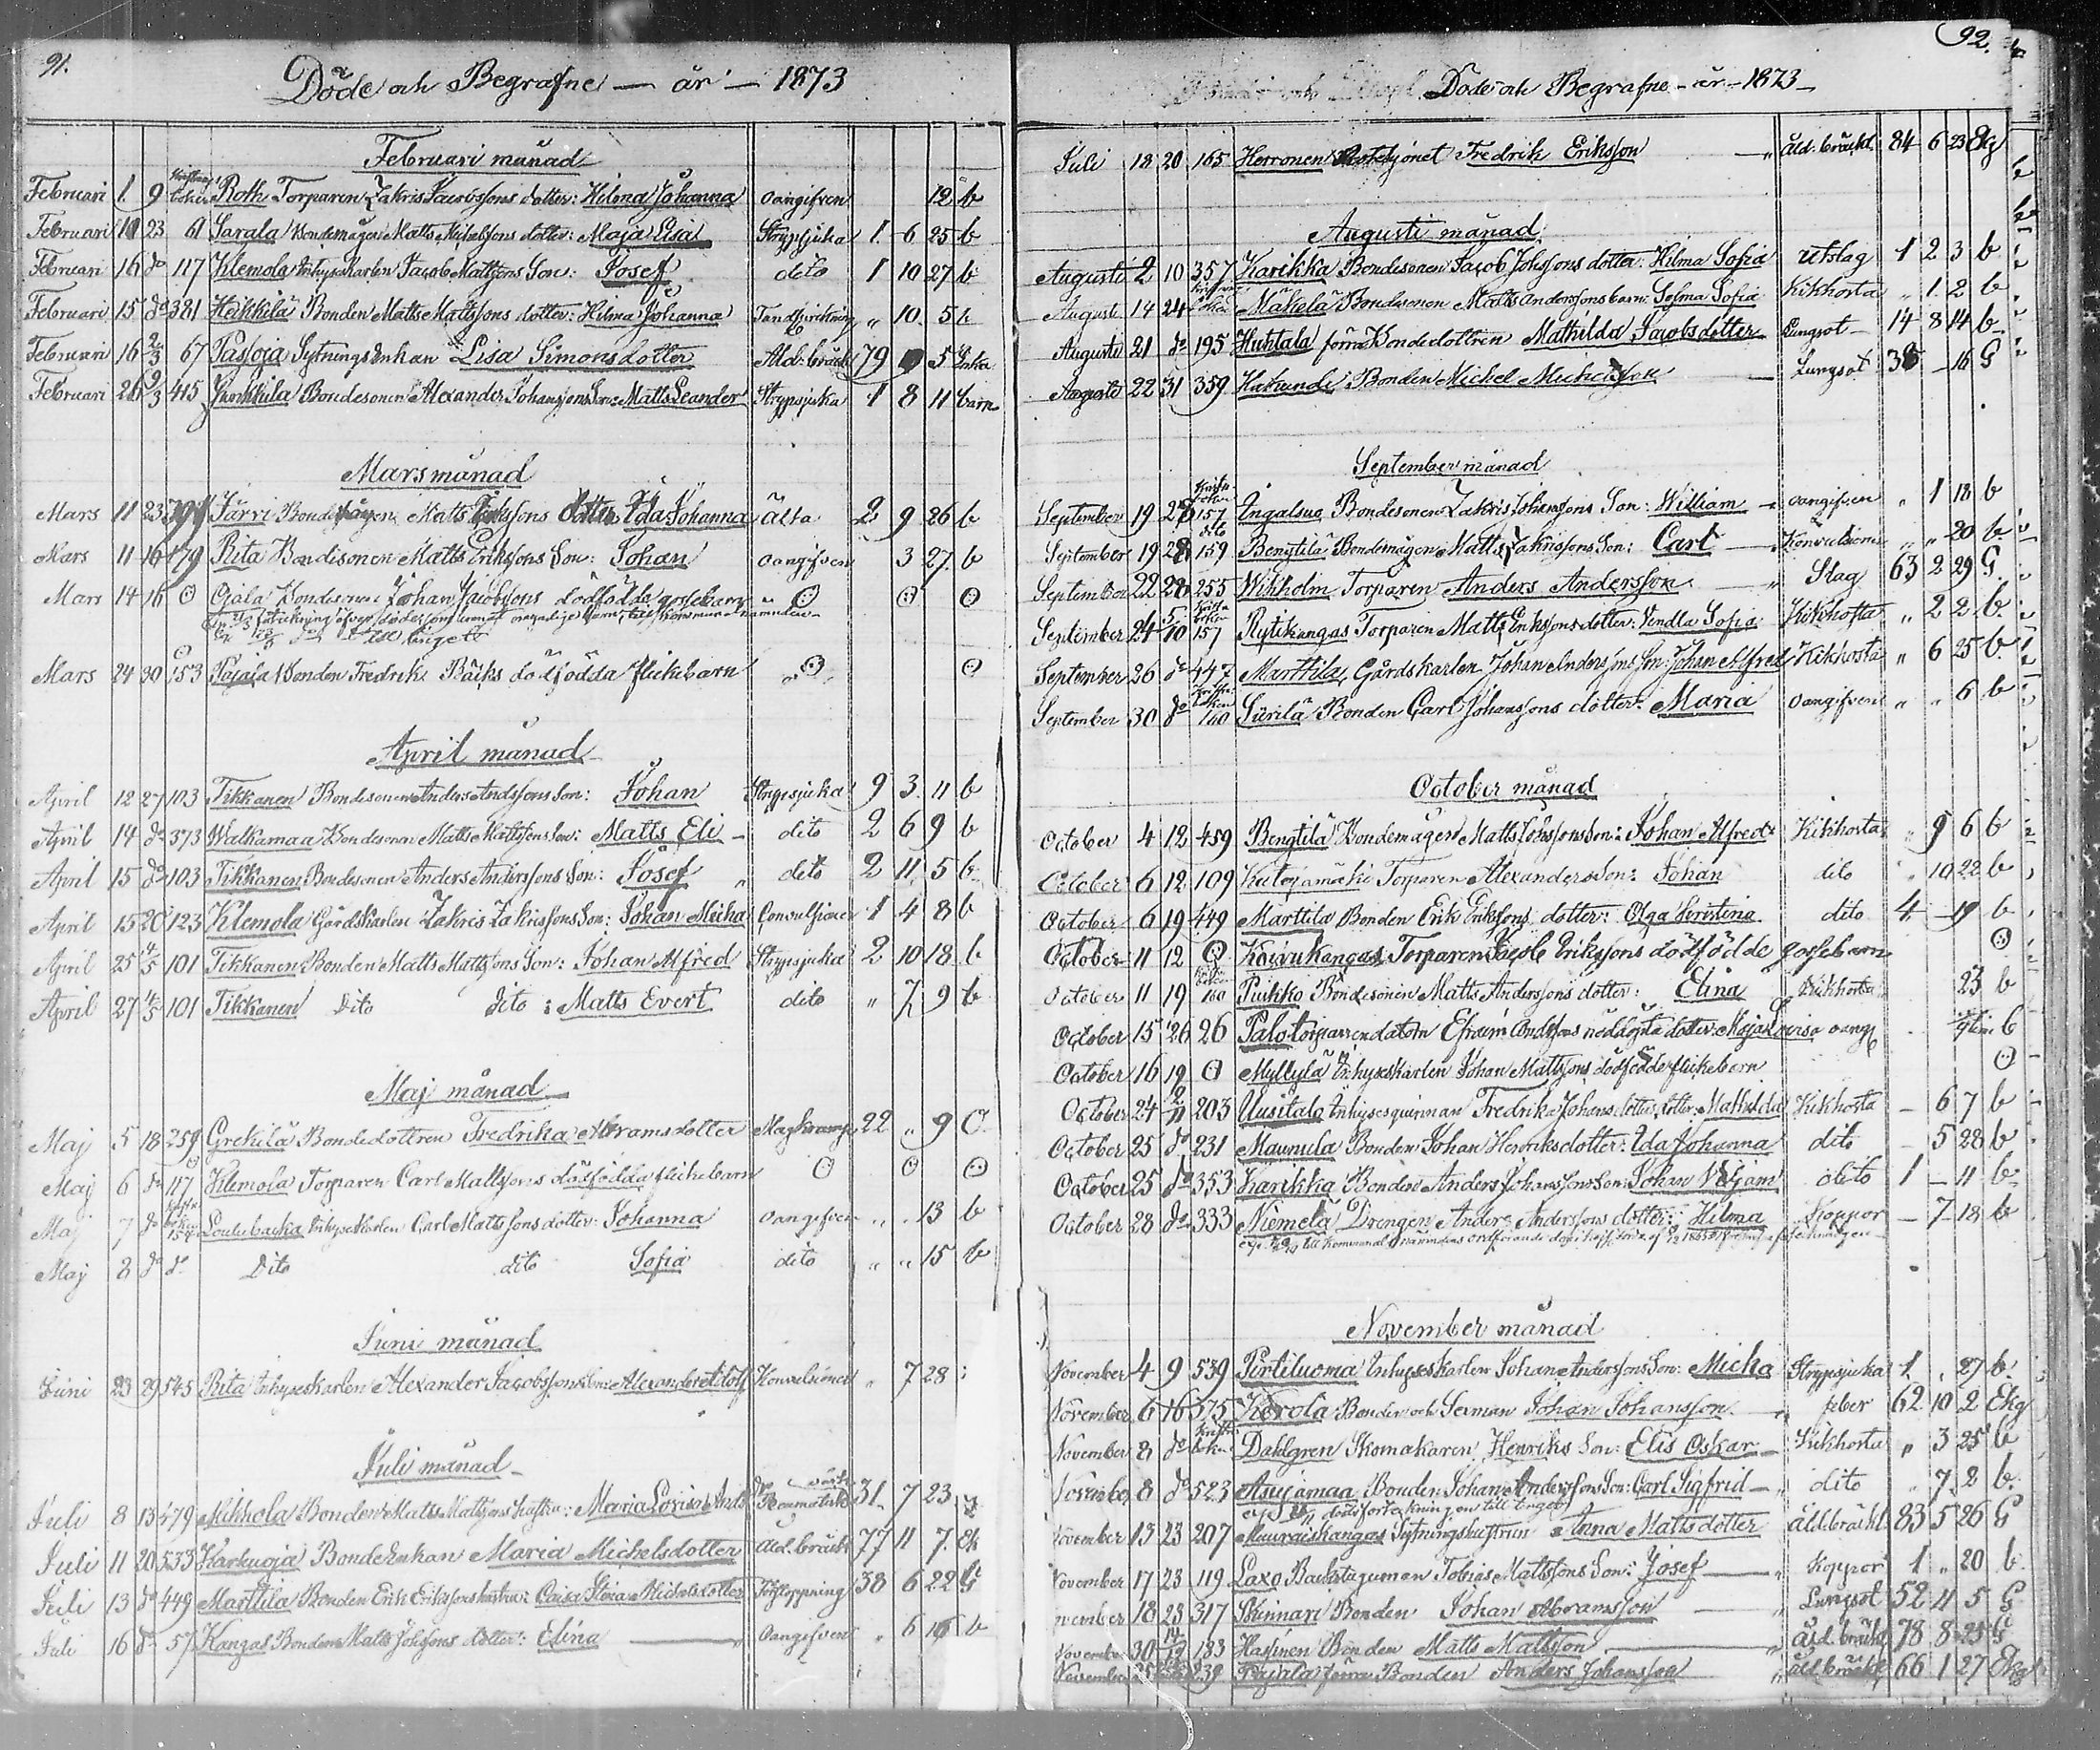 91.
Döde och Begrafne — år — 1873
Februari månad
Februari 1 9 Roth Torparen Zakris Jacobssons dotter: Hilma Johanna oangifven 12 b
Februari 11 23 61 Sarala Bondemågen Matts Michelssons dotter: Maja Lisa Strypsjuka 1 6 25 b
Februari 16 do 117 Klemola Inhyseskarlen Jacob Mattssons Son: Josef dito 1 10 27 b
Februari 15 do 381 Heikkilä Bonden Matts Mattssons dotter: Hilma Johanna Tandsprickning „ 10 5 b
Februari 16 2/3 67 Passoja Sytnings Enkan Lisa Simonsdotter Åld. bräckl 79 5 Enka
Februari 26 9/3 415 Junkkila Bondesonen Alexander Johanssons Son: Matts Leander Strypsjuka 1 8 11 barn
Mars månad
Mars 11 23 Järvi Bondemågen Matts Erikssons dotter Ida Johanna Älta 2 9 26 b
Mars 11 16 179 Rita Bondesonen Matts Erikssons Son: Johan oangifven 3 27 b
Mars 14 16 0 Ojala Bondesonen Johan Jacobssons dödfödda gossebarn
till tinget
Mars 24 30 153 Pajala Bonden Fredrik Bäcks dödfödda flickebarn
April månad
April 12 27 103 Tikkanen Bondesonen Anders Andssons Son: Johan Strypsjuka 9 3 11 b
April 14 do 373 Walkamaa Bondesonen Matts Mattssons Son: Matts Eli — dito 2 6 9 b
April 15 do 103 Tikkanen Bondesonen Anders Anderssons Son: Josef „ dito 2 11 5 b
April 15 20 123 Klemola Gårdskarlen Zakris Zakrissons Son: Johan Micha Convulsioner 1 4 8 b
April 25 4/5 101 Tikkanen Bonden Matts Mattssons Son: Johan Alfred Strypsjuka 2 10 18 b
April 27 4/5 101 Tikkanen Dito dito: Matts Evert dito „ 7 9 b
Maj månad
Maj 5 18 259 Grekilä Bondedottren Fredrika Abramsdotter Magkramp 22 „ 9 O
Maj 6 do 117 Klemola Torparen Carl Mattssons dödfödda flickebarn
Maj 7 do 154 Loukebacka Inhyseskarlen Carl Mattssons dotter: Johanna oangifven „ „ 13 b
Maj 8 do do Dito dito Sofia dito „ „ 15 b
Juni månad
Juni 23 29 545 Rita Inhyseskarlen Alexander Jacobssons Son: Alexander Konvulsioner „ 7 28
Juli månad
Juli 8 13 479 Mikkola Bonden Matts Mattssons hustru: Maria Lovisa Andsdr Reumatisk värk 31 7 23
Juli 11 20 533 Karhuoja Bonde Enkan Maria Michelsdotter Åld. bräckl 77 11 7 Ek
Juli 13 do 449 Marttila Bonden Erik Erikssons hustru: Caisa Stina Michelsdotter Förstoppning 38 6 22 G
Juli 16 do 57 Kangas Bonden Matts Johssons dotter: Elina — Oangifven „ 6 16 b
92.
Döde och Begrafne — år — 1873 —
Juli 18 20 165 Herronen Rotehjonet Fredrik Eriksson — Åld. bräckl. 84 6 23 Ekg
Augusti månad
Augusti 2 10 357 Karikka Bondesonen Jacob Johssons dotter: Hilma Sofia Utslag 1 2 3 b
Augusti 14 24 Mäkelä Bondesonen Matts Anderssons barn: Selma Sofia Kikhosta „ 1 2 b
Augusti 21 do 195 Huhtala förra Bondedottren Mathilda Jacobsdotter Lungsot 14 8 14 b
Augusti 22 31 359 Hakunde Bonden Michel Michelsson — Lungsot 38 — 16 G
September månad
September 19 28 157 Ingalsuo Bondesonen Zakris Johanssons Son: William — oangifven „ 1 18 b
September 19 28 159 Bengtilä Bondemågen Matts Zakrissons Son: Carl — Konvulsioner „ „ 20 b
September 22 28 253 Wikholm Torparen Anders Andersson — Slag 63 2 29 G
September 24 5/10 157 Rytikangas Torparen Matts Erikssons dotter: Vendla Sofia Kikhosta „ 2 2 b
September 26 do 447 Marttila Gårdskarlen Johan Anderssons Son: Johan Alfred Kikhosta „ 6 25 b
September 30 do 160 Siirilä Bonden Carl Johanssons dotter: Maria oangifven „ „ 6 b
October månad
October 4 12 459 Bengtilä Bondemågen Matts Johssons Son: Johan Alfred Kikhosta „ 9 6 b
October 6 12 109 Kutojamäki Torparen Alexanders Son: Johan dito „ 10 22 b
October 6 19 449 Marttila Bonden Erik Erikssons dotter: Olga Kristina dito 4 — 19 b
October 11 12 0 Koivukangas Torparen Jacob Erikssons dödfödde gossebarn
October 11 19 160 Puikko Bondesonen Matts Anderssons dotter: Elina Kikhosta 23 b
October 15 26 26 Palo torparrendatorn Efraim Andssons nöddöpta dotter: Maja Lovisa oang b
October 16 19 0 Myllylä Inhyseskarlen Johan Mattssons dödfödde flickebarn
October 24 2/11 203 Uusitalo Inhysesqvinnan Fredrika Johansdotters dotter: Mathilda Kikhosta — 6 7 b
October 25 do 231 Maunula Bonden Johan Henriks dotter: Ida Johanna dito — 5 28 b
October 25 do 353 Karikka Bonden Anders Johanssons Son: Johan Viljam dito 1 — 11 b
October 28 do 333 Niemelä Drengen Anders Anderssons dotter: Hilma Koppor — 7 18 b
November månad
November 4 9 539 Pirtiluoma Inhyseskarlen Johan Anderssons Son: Micha Strypsjuka 1 „ 27 b
November 6 16 575 Kerola Bonden och Sexman Johan Johansson feber 62 10 2 Ekg
November 8 do Dahlgren Skomakaren Henriks Son: Elis Oskar — Kikhosta „ 3 25 b
November 8 do 523 Asujamaa Bonden Johan Anderssons Son: Carl Sigfrid — dito „ 7 2 b
dödsförteckningen till tinget
November 13 23 207 Muuraiskangas Sytningshustrun Anna Mattsdotter åld.bräckl 83 5 26 G
November 17 23 119 Laxo Backstuguman Tobias Mattssons Son: Josef — Koppor 1 „ 20 b
November 18 23 317 Skinnari Bonden Johan Abramsson — Lungsot 52 11 5 G
November 30 14/12 183 Hassinen Bonden Matts Mattsson — åld. bräckl 78 8 25 G
November 239 Pajala förra Bonden Anders Johansson åld. bräckl 66 1 27 Ekg